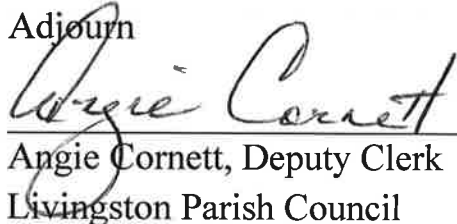 Adjourn
Angie Cornett
Angie Cornett, Deputy Clerk
Livingston Parish Council